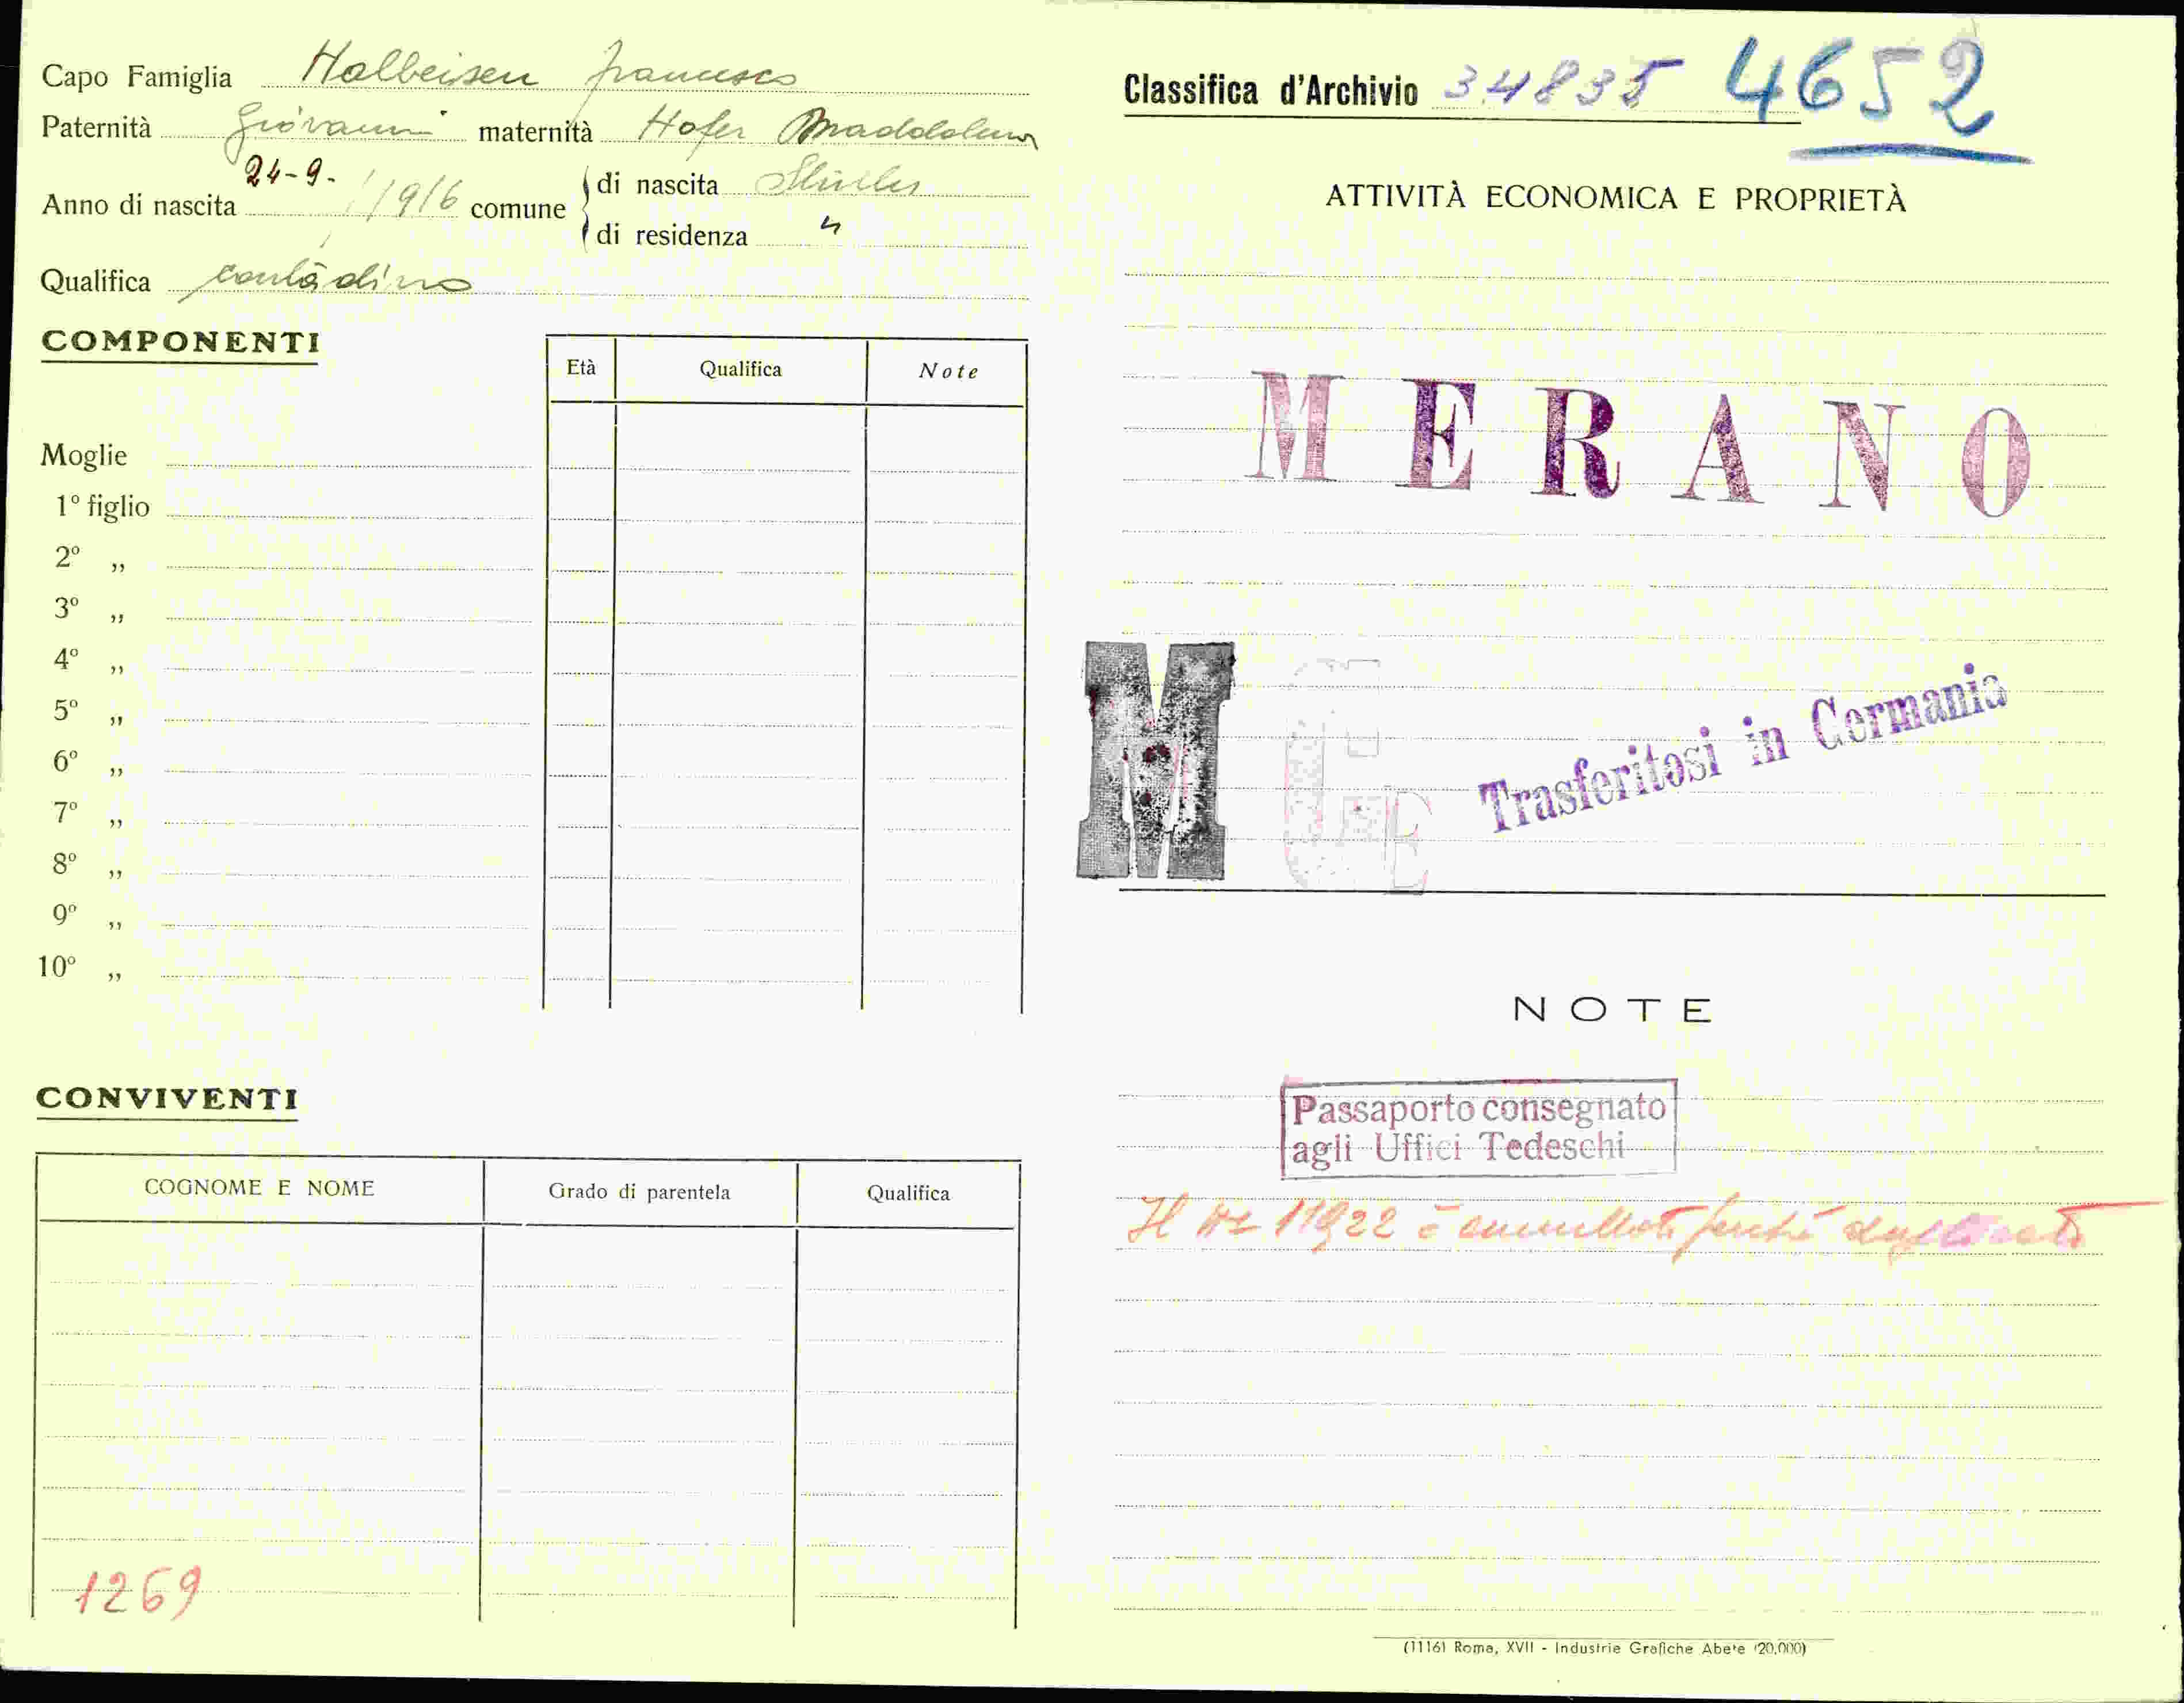 Capo Famiglia Halbeisen Francesco
Paternità Giovanni maternità Hofer Maddalena
24-9-
Anno di nascita 1916 comune di nascita
di residenza "
Qualifica contadino
COMPONENTI
Età Qualifica Note
Moglie
1º figlio
2º „
3º „
4º „
5º „
6º „
7º „
8º „
9º „
10º „
CONVIVENTI
COGNOME E NOME Grado di parentela Qualifica
1269
Classifica d'Archivio 34835 4652
ATTIVITÀ ECONOMICA E PROPRIETÀ
MERANO
M
E
Trasferitosi in Germania
NOTE
Passaporto consegnato
agli Uffici Tedeschi
Il 11922 è annullato perché
(1116) Roma, XVII - Industrie Grafiche Abete (20.000)